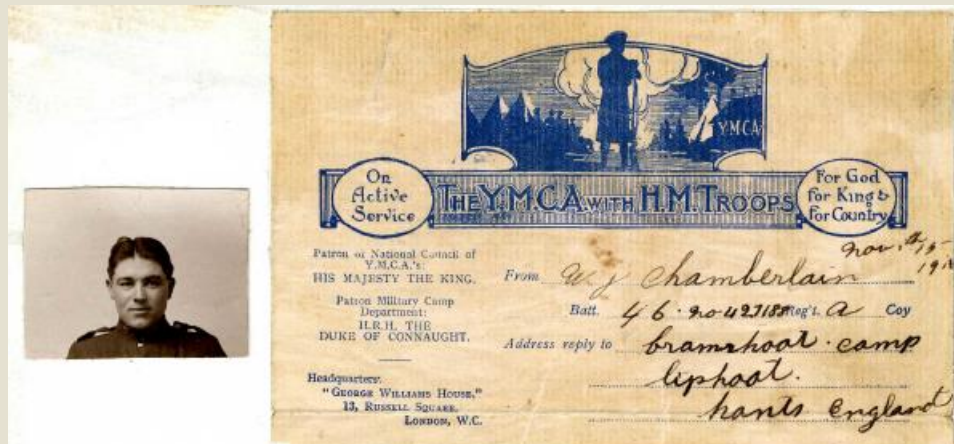 YMCA
On
Active
Service
THE Y.M.C.A. WITH H.M. TROOPS
For God
For King &
For Country
Patron of National Council of
Y.M.C.A.'s:
HIS MAJESTY THE KING.
Patron Military Camp
Department:
H.R.H. THE
DUKE OF CONNAUGHT.
Headquarters:
"GEORGE WILLIAMS HOUSE,"
13, RUSSELL SQUARE,
LONDON, W.C.
nov. th 15
From W J Chamberlain
Batt. 46. no Reg't. A Coy
Address reply to bramshoot. camp
liphoot.
hants England